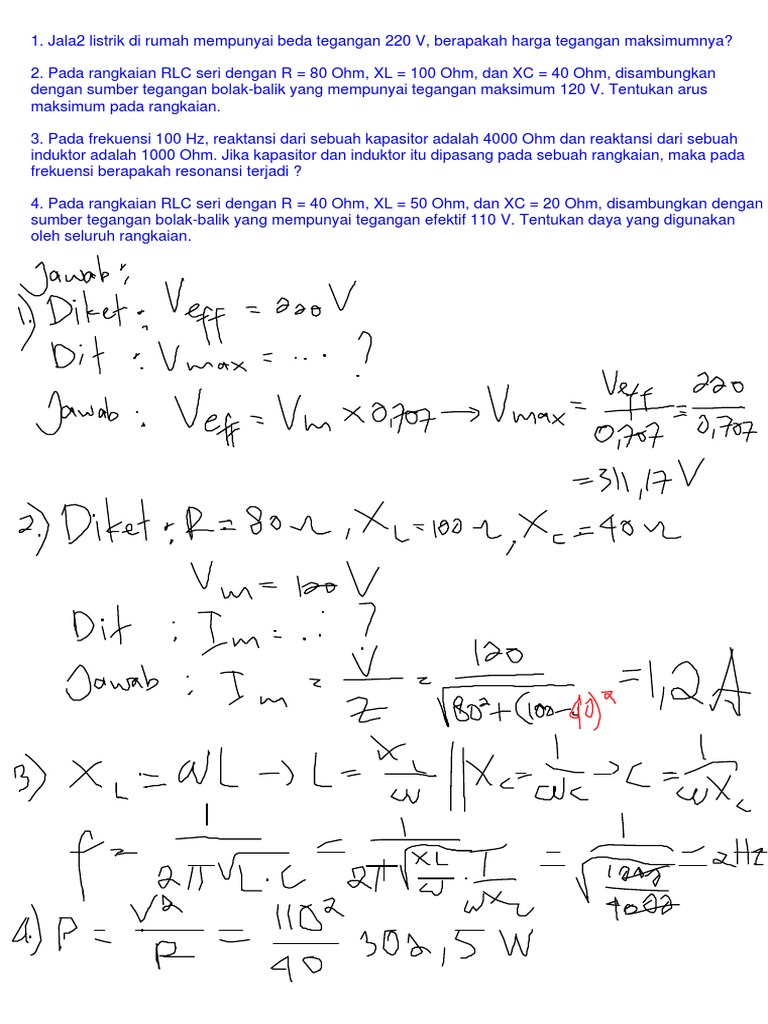 1. Jala2 listrik di rumah mempunyai beda tegangan 220 V, berapakah harga tegangan maksimumnya?
2. Pada rangkaian RLC seri dengan R = 80 Ohm, XL = 100 Ohm, dan XC = 40 Ohm, disambungkan
dengan sumber tegangan bolak-balik yang mempunyai tegangan maksimum 120 V. Tentukan arus
maksimum pada rangkaian.
3. Pada frekuensi 100 Hz, reaktansi dari sebuah kapasitor adalah 4000 Ohm dan reaktansi dari sebuah
induktor adalah 1000 Ohm. Jika kapasitor dan induktor itu dipasang pada sebuah rangkaian, maka pada
frekuensi berapakah resonansi terjadi ?
4. Pada rangkaian RLC seri dengan R = 40 Ohm, XL = 50 Ohm, dan XC = 20 Ohm, disambungkan dengan
sumber tegangan bolak-balik yang mempunyai tegangan efektif 110 V. Tentukan daya yang digunakan
oleh seluruh rangkaian.
Jawab :
1.) Diket : Veff = 220 V
Dit : Vmax = ... ?
Jawab : Veff = Vm x 0,707 → Vmax = Veff / 0,707 = 220 / 0,707
= 311,17 V
2.) Diket : R = 80 Ω, XL = 100 Ω, XC = 40 Ω
Vm = 120 V
Dit : Im = ... ?
Jawab : Im = V / Z = 120 / √80² + (100 - 40)² = 1,2 A
3) XL = ωL → L = XL / ω || XC = 1 / ωC → C = 1 / ωXC
f = 1 / 2π√L.C = 1 / 2π√XL/ω . 1/ωXC = 1 / √1000/4000 = 2Hz
4.) P = V² / R = 110² / 40 302,5 W